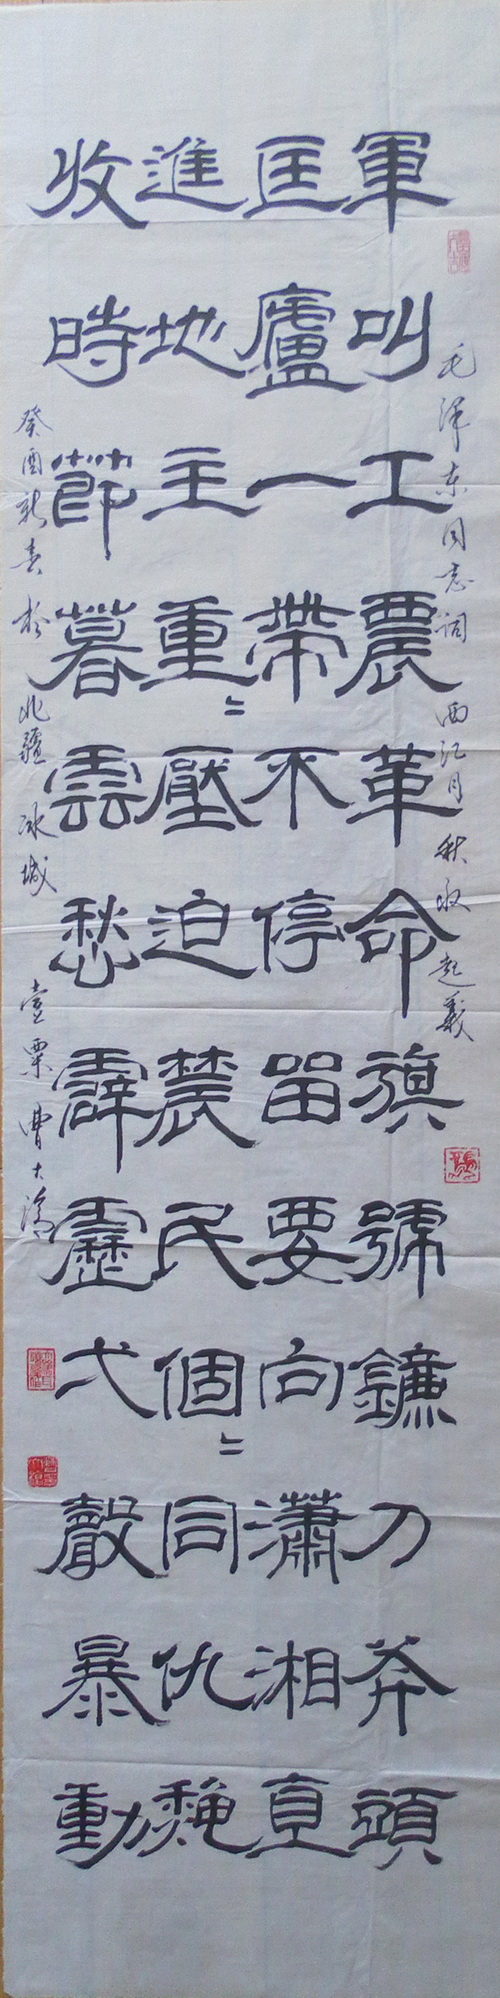 毛泽东同志词 西江月 秋收起義
軍叫工農革命旗號鐮刀斧頭
匡廬一帶不停留要向瀟湘直
進地主重〻壓迫農民個〻同仇穐
收時節暮雲愁霹靂弌聲暴動
癸酉新春於北疆冰城 壹粟曹大